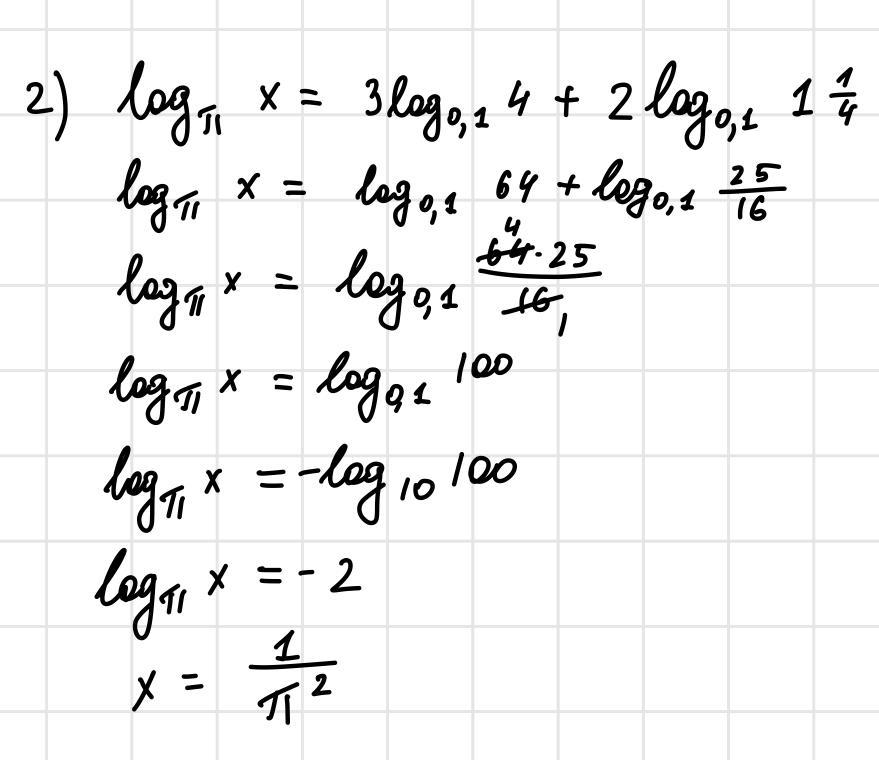 2) log_π x = 3log_0,1 4 + 2 log_0,1 1 1/4
log_π x = log_0,1 64 + log_0,1 25/16
log_π x = log_0,1 (64 4 · 25)/(16 1)
log_π x = log_0,1 100
log_π x = -log_10 100
log_π x = - 2
x = 1/π²